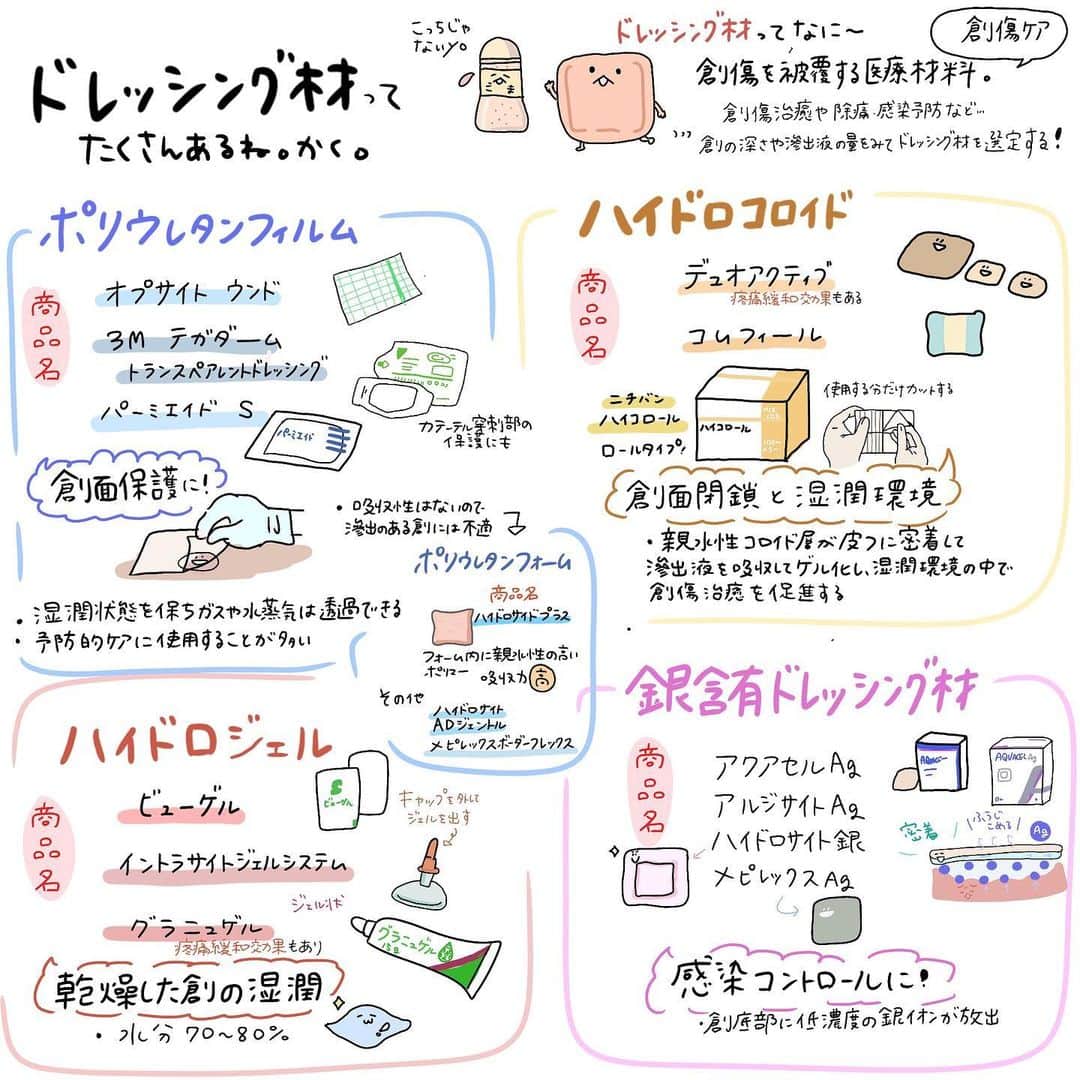 ドレッシング材って
たくさんあるね。かく。
こっちじゃ
ないよ。
ごま
ドレッシング材ってなに〜
創傷ケア
創傷を被覆する医療材料。
創傷治癒や除痛・感染予防など…
創の深さや滲出液の量をみてドレッシング材を選定する!
ポリウレタンフィルム
商品名
オプサイト ウンド
3M テガダーム
トランスペアレントドレッシング
パーミエイド S
パーミエイド
カテーテル穿刺部の
保護にも
創面保護に!
・吸収性はないので
滲出のある創には不適
・湿潤状態を保ちガスや水蒸気は透過できる
・予防的ケアに使用することが多い
ポリウレタンフォーム
商品名
ハイドロサイトプラス
フォーム内に親水性の高い
ポリマー
吸収力 高
その他
ハイドロサイト
ADジェントル
メピレックスボーダーフレックス
ハイドロコロイド
商品名
デュオアクティブ
疼痛緩和効果もある
コムフィール
ニチバン
ハイコロール
ロールタイプ!
ハイコロール
使用する分だけカットする
創面閉鎖と湿潤環境
・親水性コロイド層が皮フに密着して
滲出液を吸収してゲル化し、湿潤環境の中で
創傷治癒を促進する
ハイドロジェル
商品名
ビューゲル
ビューゲル
キャップを外して
ジェルを出す
イントラサイトジェルシステム
ジェル状
グラニュゲル
疼痛緩和効果もあり
グラニュゲル
15g
乾燥した創の湿潤
・水分 70〜80%
銀含有ドレッシング材
商品名
アクアセルAg
アルジサイトAg
ハイドロサイト銀
メピレックスAg
AQUACEL Ag
密着
ふうじ
こめる
Ag
感染コントロールに!
・創底部に低濃度の銀イオンが放出